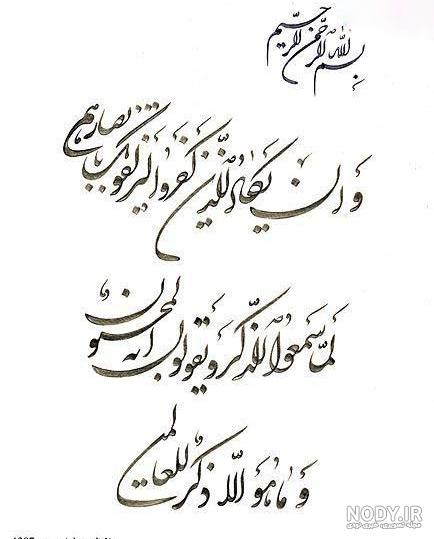 بسم الله الرحمن الرحیم
و ان یکاد الذین کفروا لیزلقونک بابصارهم
لما سمعوا الذکر و یقولون انه لمجنون
و ما هو الا ذکر للعالمین
NODY.IR